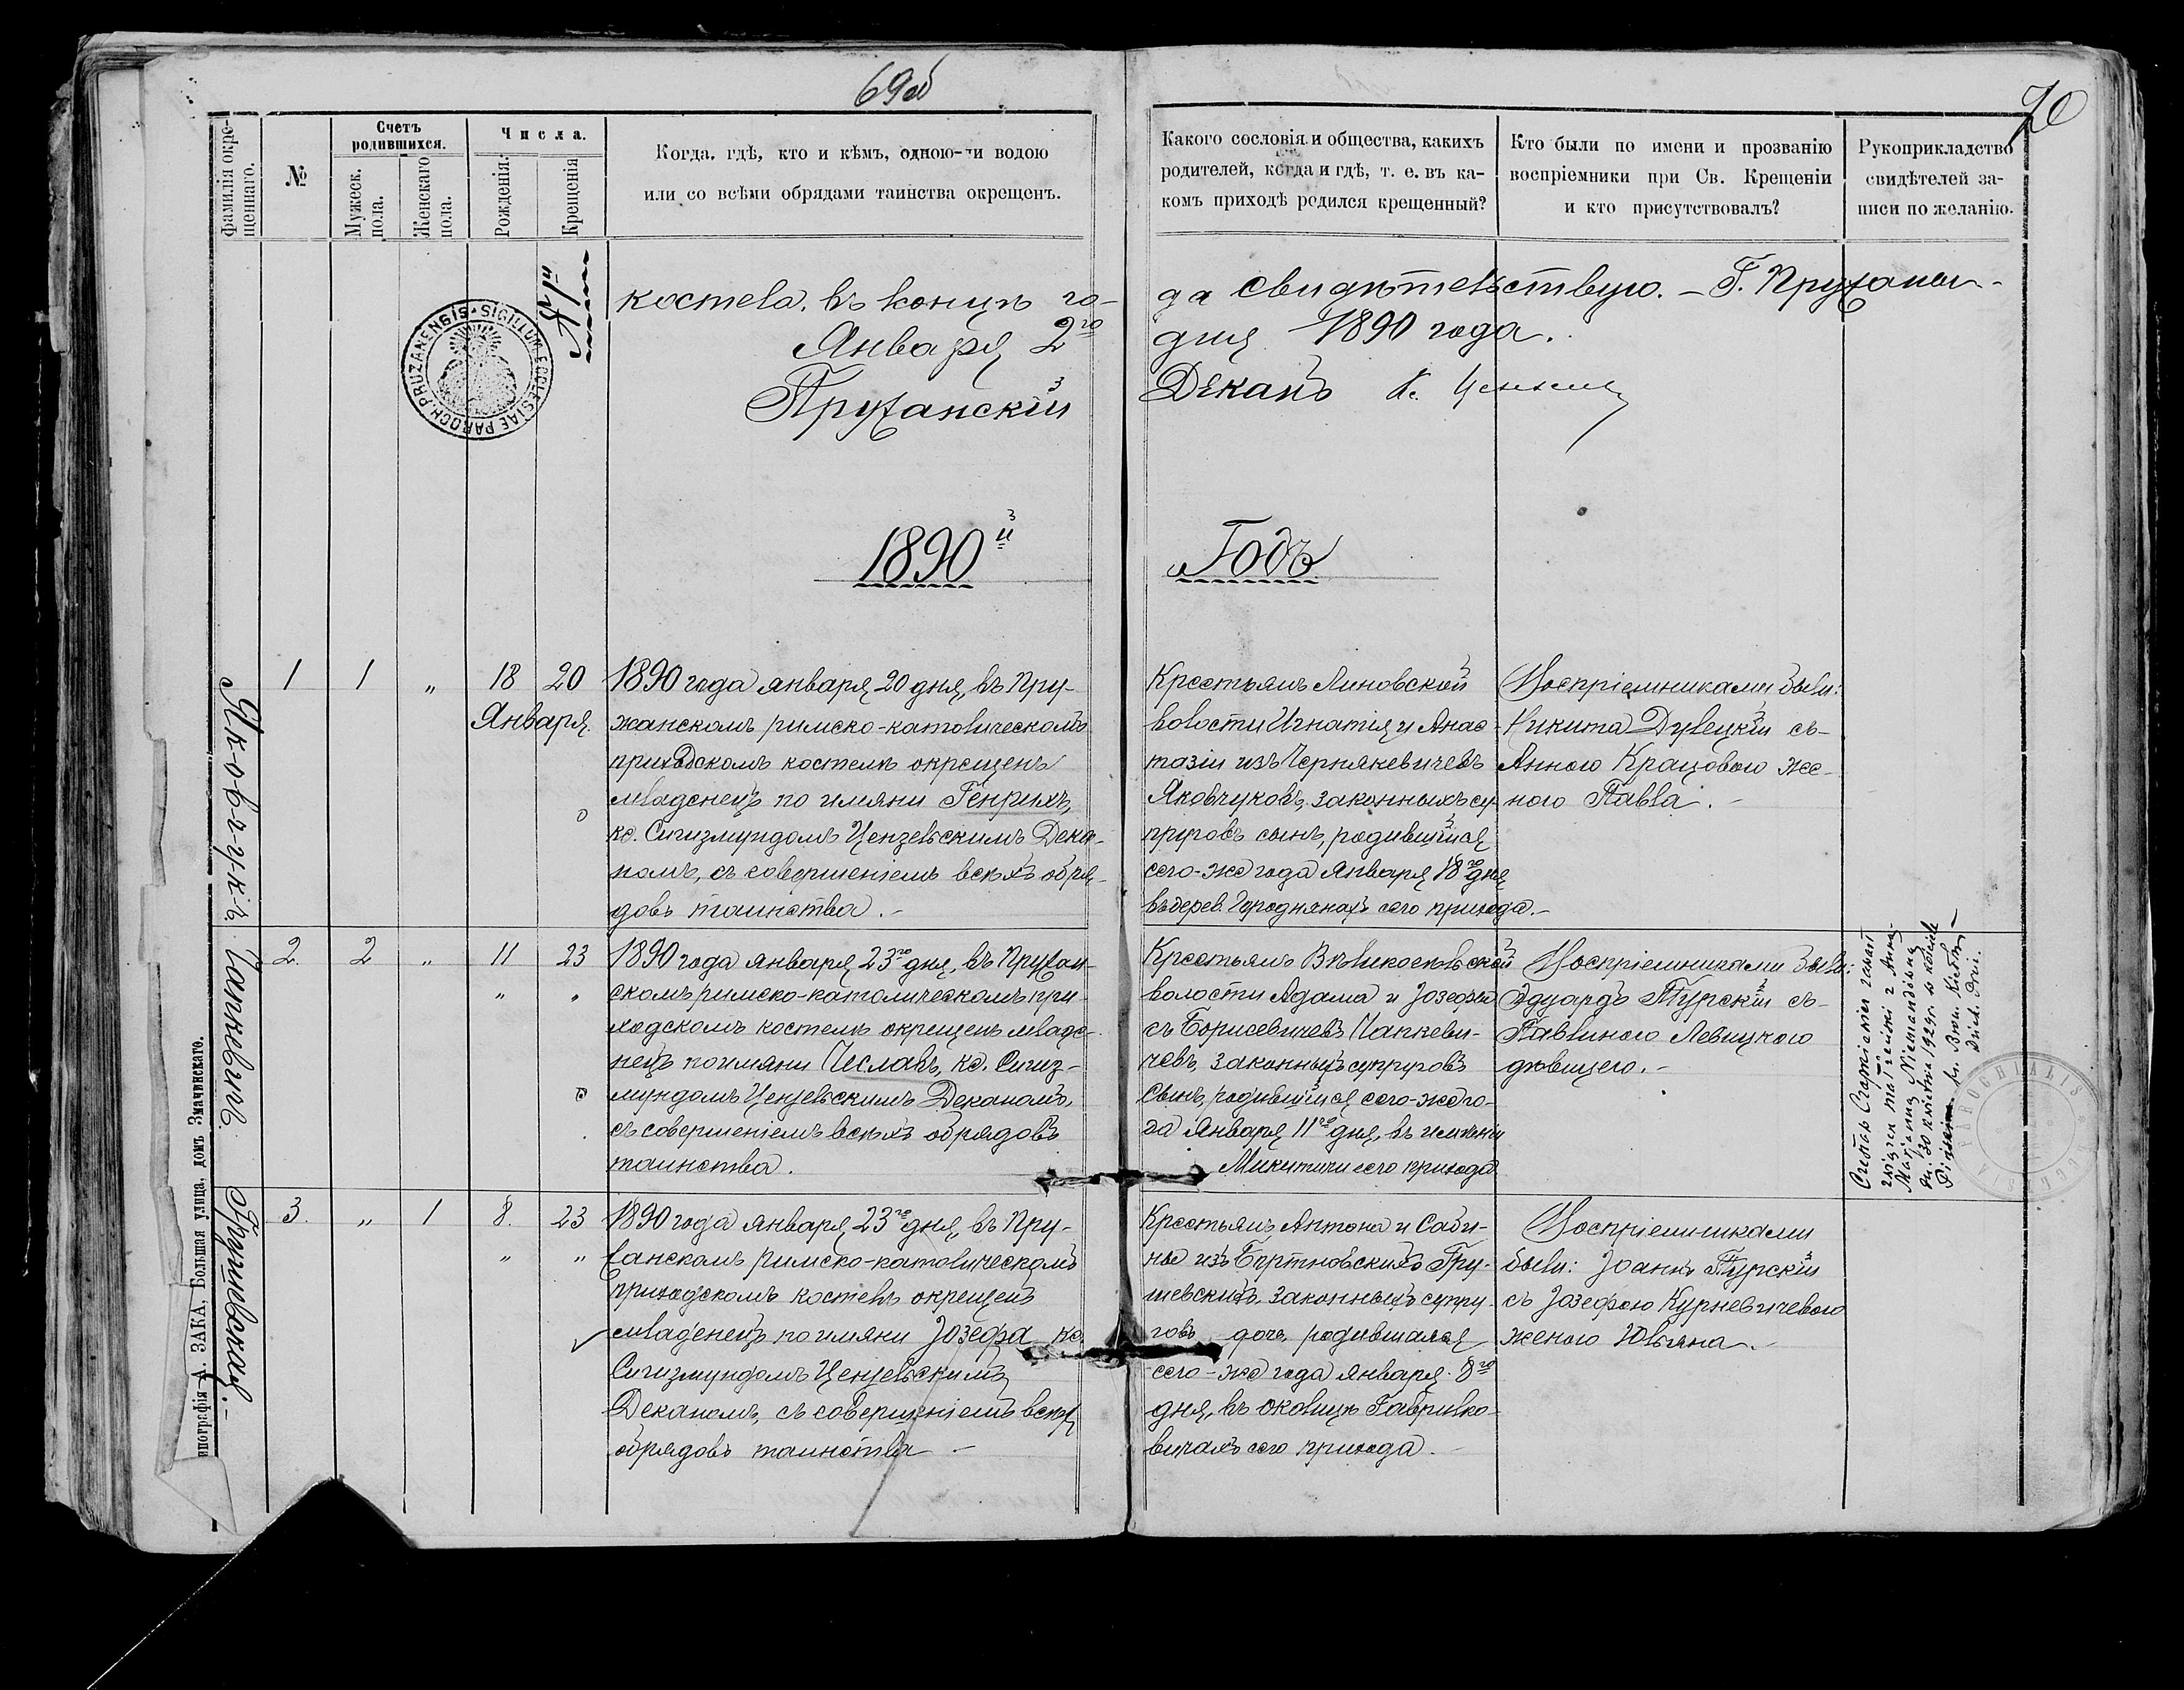 69об
70
Фамилія окре-
щеннаго.
№
Счетъ
родившихся.
Мужеск.
пола.
Женскаго
пола.
Числа.
Рожденія.
Крещенія
Когда, гдѣ, кто и кѣмъ, одною-ли водою
или со всѣми обрядами таинства окрещенъ.
Какого сословія и общества, какихъ
родителей, когда и гдѣ, т. е. въ ка-
комъ приходѣ родился крещенный?
Кто были по имени и прозванію
воспріемники при Св. Крещеніи
и кто присутствовалъ?
Рукоприкладство
свидѣтелей за-
писи по желанію.
SIGILLUM ECCLESIAE PAROCH PRUZANENSIS
костела, въ концѣ го-
да свидѣтельствую. – Г. Пружаны
Января 2го
дня 1890 года.
Пружанскій
Деканъ К.
1890й
Годъ
Яковчукъ.
1
1
„
18
20
Января.
1890 года января 20 дня, въ Пру-
жанскомъ римско-католическомъ
приходскомъ костелѣ окрещенъ
младенецъ по имяни Генрихъ,
кс. Сигизмундомъ Цензевскимъ Дека-
номъ, съ совершеніемъ всѣхъ обря-
довъ таинства. –
Крестьянъ Линовской
волости Игнатія и Анас-
тазіи изъ Черняквичевъ
Яковчуковъ, законныхъ су-
пруговъ сынъ, родившійся
сего-же года Января 18го дня
въ дерев. Городнянахъ сего прихода. –
Воспріемниками были:
Никита Дулецкій съ
Анною Крацовою же-
ною Павла. –
Цапкевичъ.
2.
2
„
11
23
„
„
1890 года января 23го дня, въ Пружан-
скомъ римско-католическомъ при-
ходскомъ костелѣ окрещенъ младе-
нецъ по имяни Чеславъ, кс. Сигиз-
мундомъ Цензевскимъ Деканомъ,
съ совершеніемъ всѣхъ обрядовъ
таинства.
Крестьянъ Вѣликосельской
волости Адама и Іозефы
съ Борисевичевъ Цапкеви-
чевъ, законныхъ супруговъ
сынъ, родившійся сего-же го-
да Января 11го дня, въ имѣніи
Микитичи сего прихода
Воспріемниками были:
Эдуардъ Турскій съ
Павлиною Левицкою
дѣвицею. –
Czesław Czapkiewicz zawarł
związek małżeński z Anną-
Marjanną Niemandówną
dn. 30 kwietnia 1929 r. w kościele
Грушевская. –
3.
„
1
8.
23
„
„
1890 года января 23го дня, въ Пру-
жанскомъ римско-католическомъ
приходскомъ костелѣ окрещенъ
младенецъ по имяни Іозефа кс.
Сигизмундомъ Цензевскимъ
Деканомъ, съ совершеніемъ всѣхъ
обрядовъ таинства –
Крестьянъ Антона и Саби-
ны изъ Бортновскихъ Гру-
шевскихъ, законныхъ супру-
говъ дочь, родившаяся
сего-же года января 8го
дня, въ околицѣ Гаврилко-
вичахъ сего прихода. –
Воспріемниками
были: Іоаннъ Турскій
съ Іозефою Курневичевою
женою Юльяна. –
ипографія А. ЗАКА, Большая улица, домъ Значинскаго.